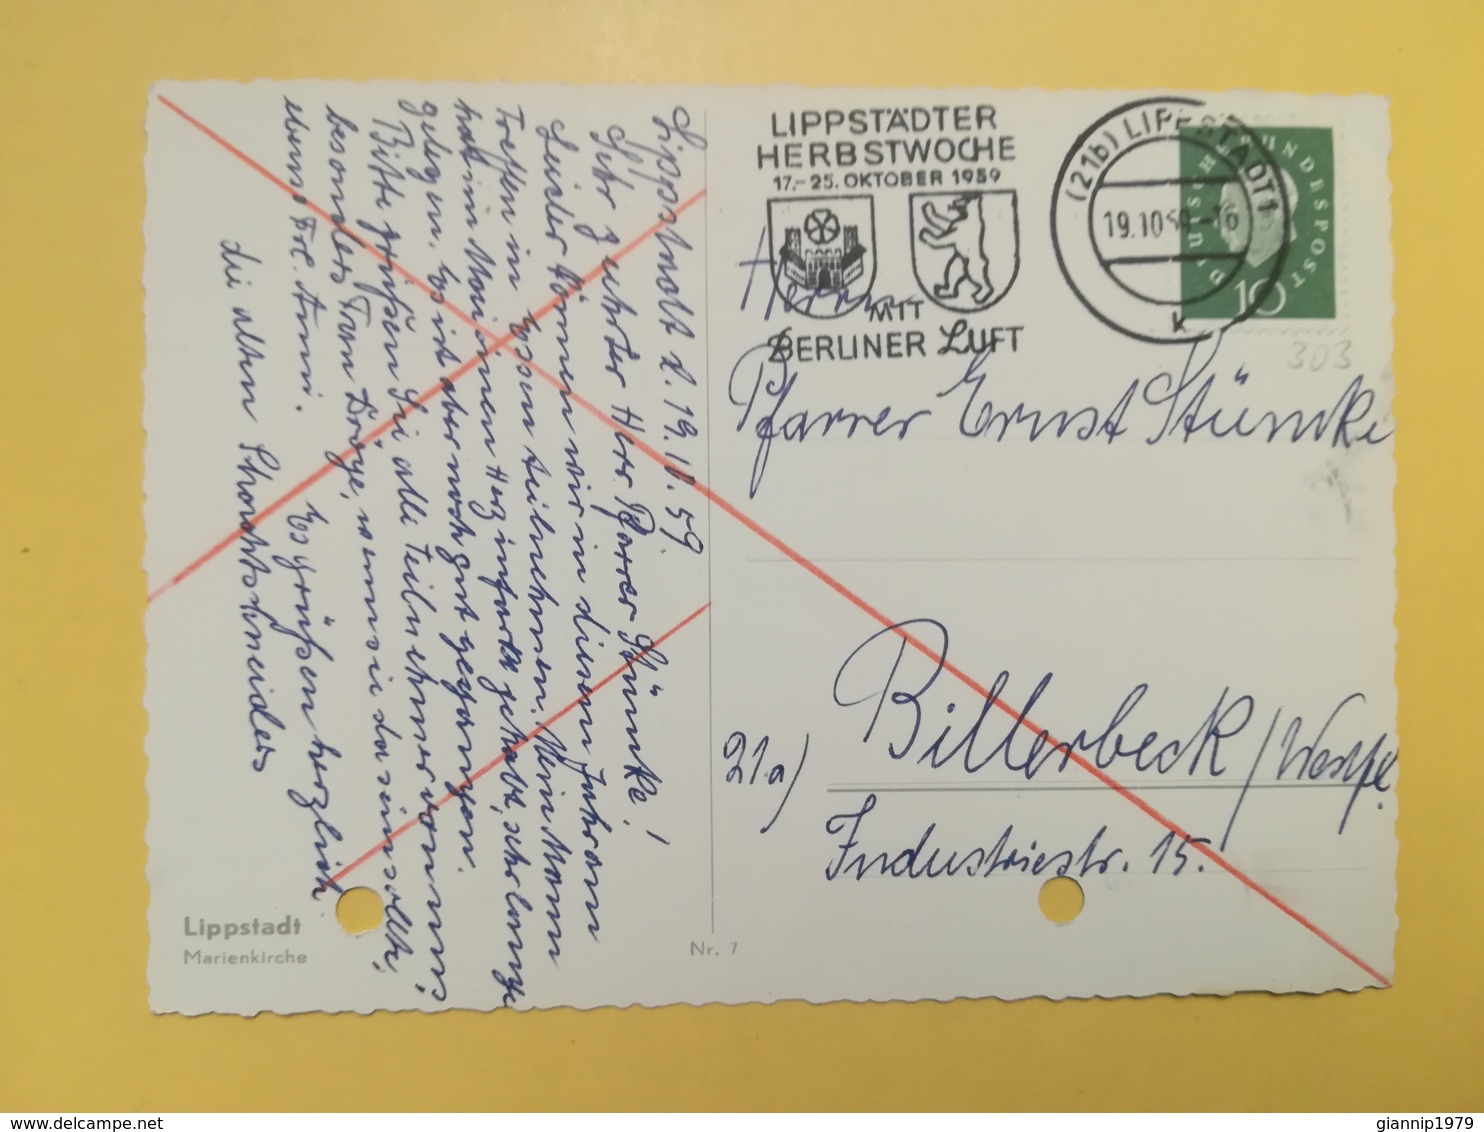 Lippstadt d. 19.10.59.
Sehr geehrter Herr Pfarrer Stümke!
Leider können wir in diesem Jahr am
Treffen in Essen teilnehmen. Mein Mann
hat im Mai einen Herz infarkt gehabt, sehr lange
gelegen. Es ist aber noch gut gegangen.
Bitte grüßen Sie alle Teilnehmer von uns,
besonders Frau Dröge, wenn sie da sein sollte,
ebenso Frl. Anni. Es grüßen herzlich
die alten
LIPPSTÄDTER
HERBSTWOCHE
17.-25. OKTOBER 1959
MIT
BERLINER LUFT
(21b) LIPPSTADT 1
19.10.59.-16
k
DEUTSCHE BUNDESPOST
10
303
Herrn
Pfarrer Ernst Stümke
21a) Billerbeck/Westf.
Industriestr. 15.
Lippstadt
Marienkirche
Nr. 7
giannip1979